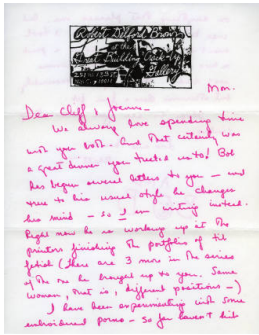 Robert Delford Brown
at the
Great Building Crack-Up
Gallery
Mon.
Dear Cliff & Joann -
We always love spending time
with you both. And that certainly was
a great dinner you treated us to! Bob
has begun several letters to you - and
true to his usual style he changes
his mind - so I am writing instead.
Right now he is working up at the
printers finishing the portfolio of tit
fetish (there are 3 more in the series
of the one he brought up to you. Same
woman, that is, different positions -)
I have been experimenting with some
embroidered porno - so far haven't hit